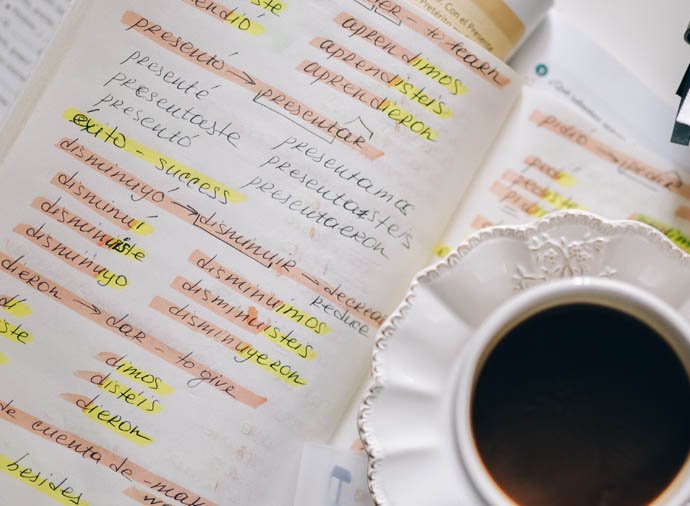 dió
éste
presentó → presentar
presenté
presentaste
presentó
éxito - success
disminuyó → disminuir → decrease
reduce
disminuí
disminuiste
disminuyo
dieron → dar - to give
dí
ste
de cuenta de - mak
besides
- to learn
aprendimos
aprendisteis
aprendieron
presentamos
presentasteis
presentaeron
disminuimos
disminuisteis
disminuyeron
dimos
disteis
dieron
Con el Presente
pidió → pedir
pedí